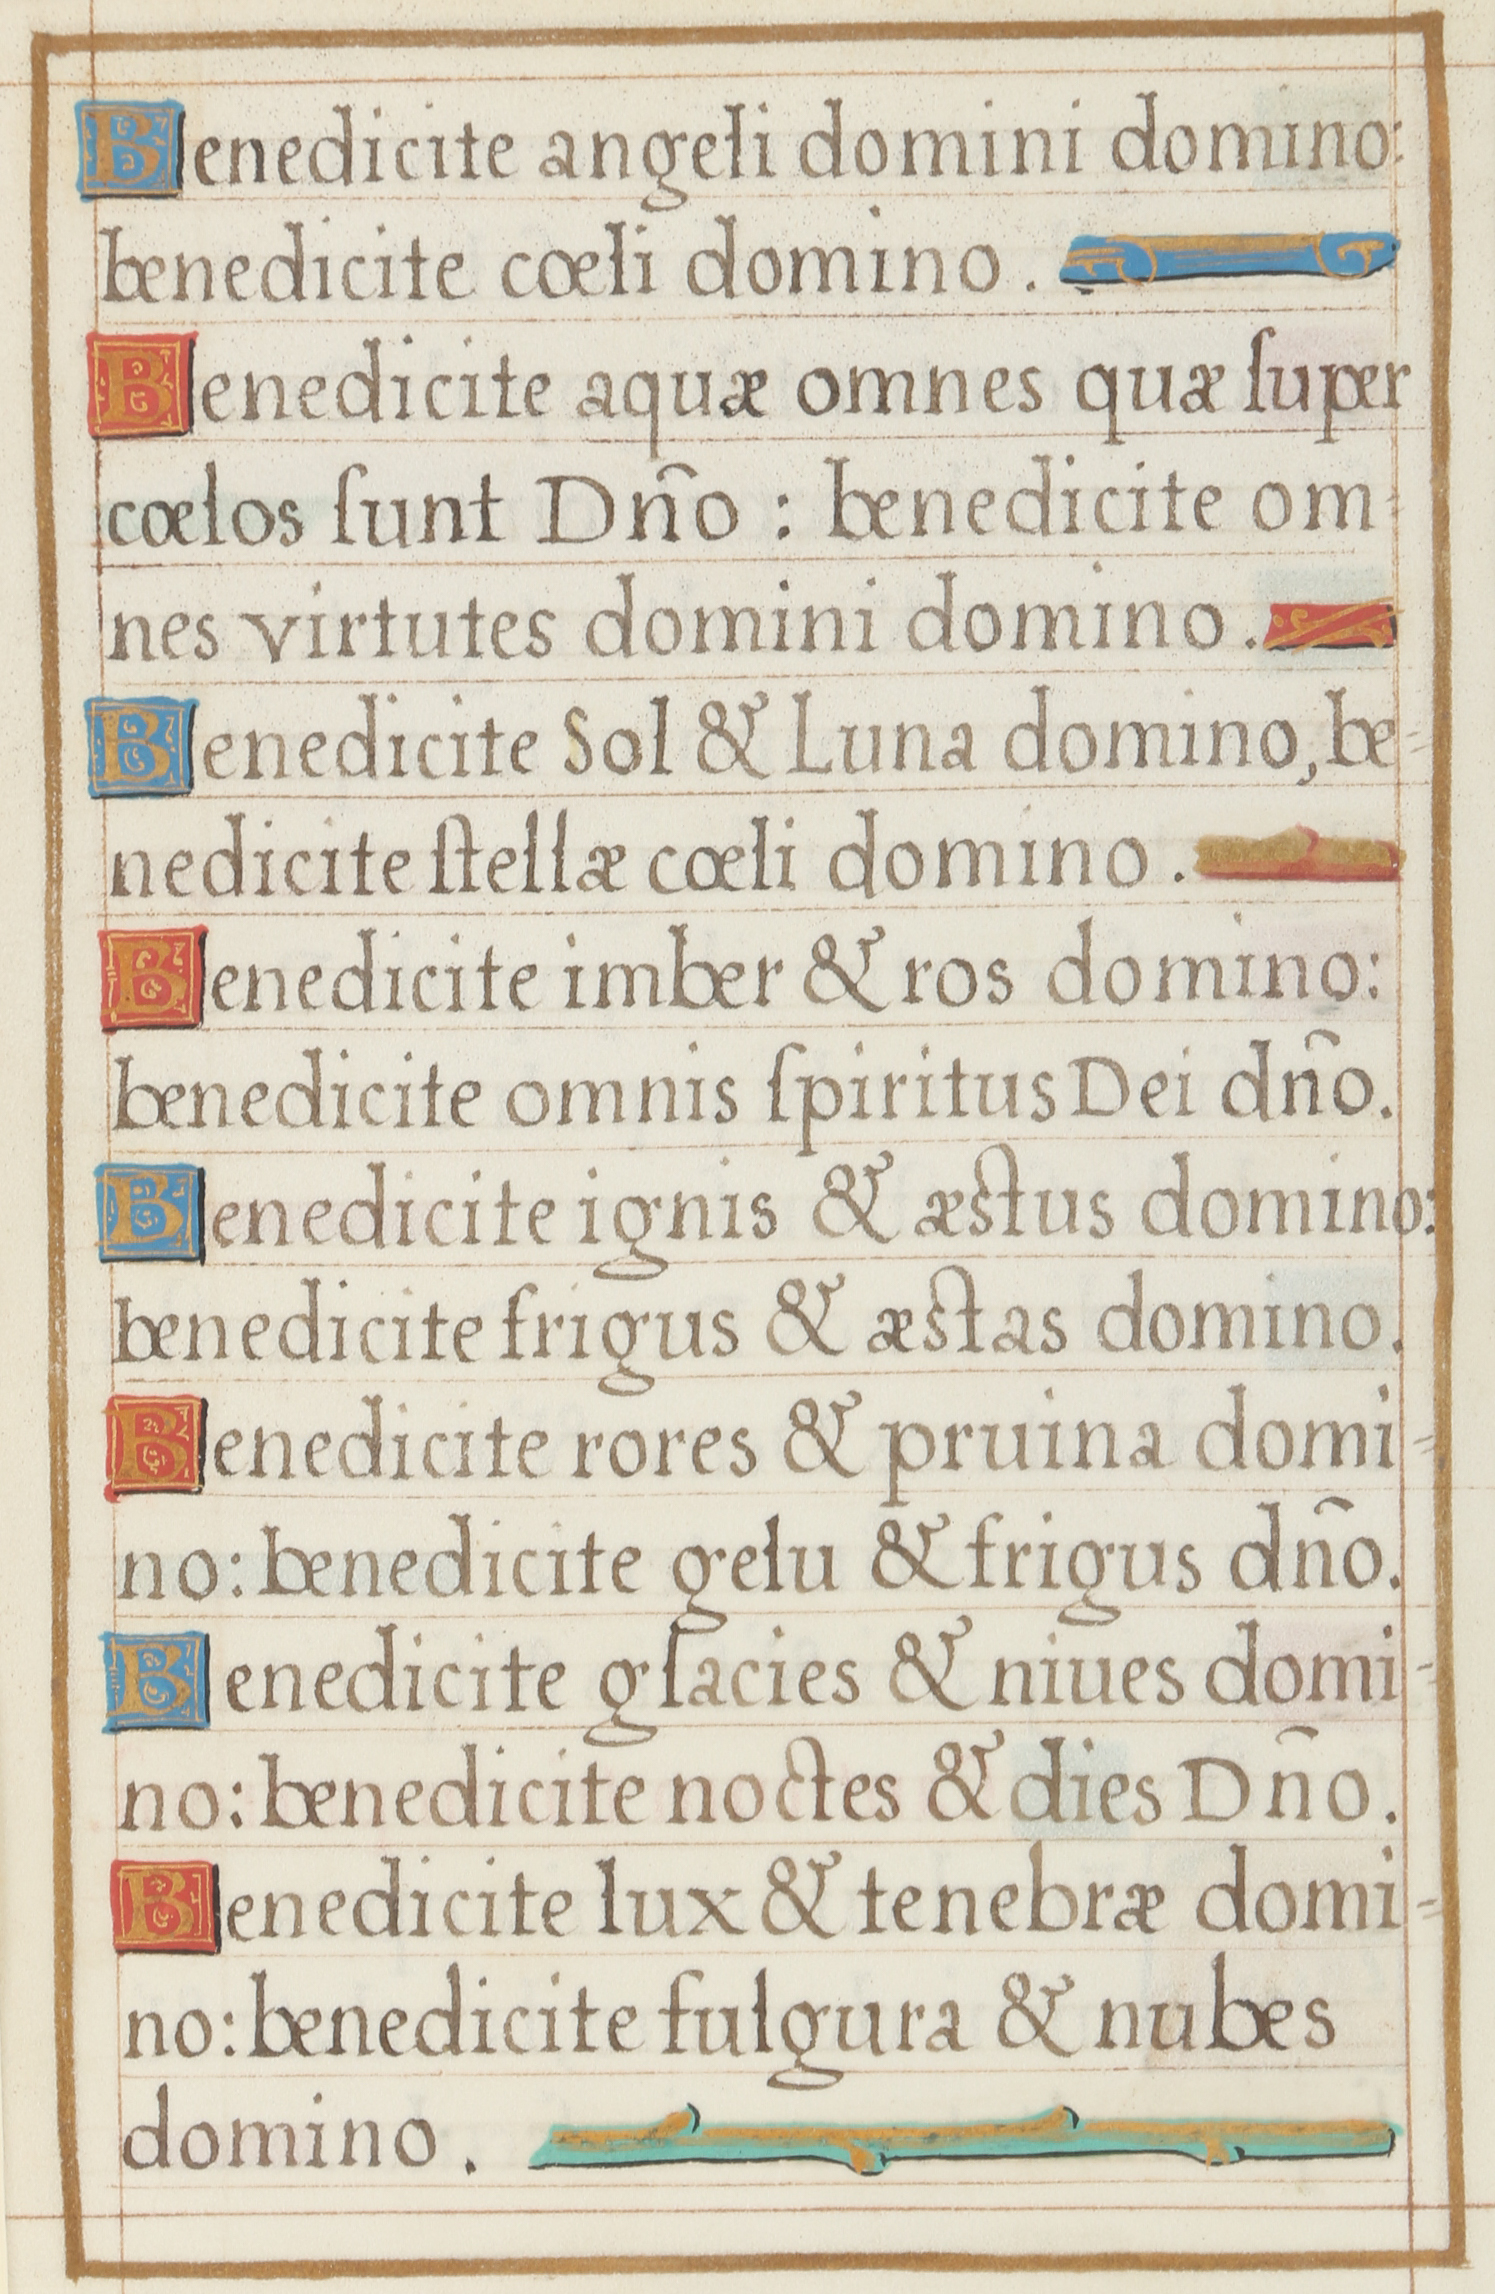 Benedicite angeli domini domino:
benedicite cœli domino.
Benedicite aquæ omnes quæ ſuper
cœlos ſunt Dño : benedicite om-
nes virtutes domini domino.
Benedicite Sol & Luna domino, be-
nedicite ſtellæ cœli domino.
Benedicite imber & ros domino:
benedicite omnis ſpiritus Dei dño.
Benedicite ignis & æstus domino:
benedicite frigus & æstas domino.
Benedicite rores & pruina domi-
no: benedicite gelu & frigus dño.
Benedicite glacies & niues domi-
no: benedicite noctes & dies Dño.
Benedicite lux & tenebræ domi-
no: benedicite fulgura & nubes
domino.